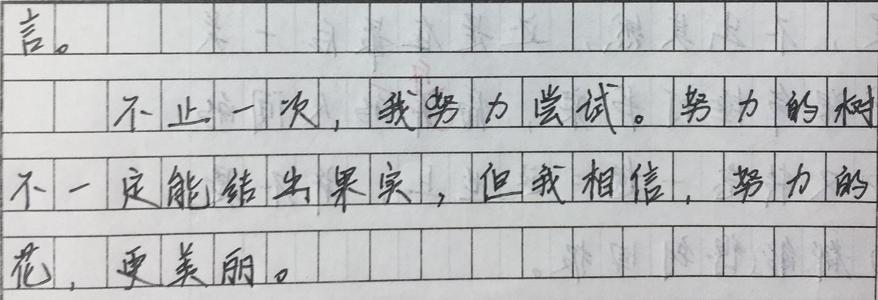 言。
不止一次，我努力尝试。努力的树
不一定能结出果实，但我相信，努力的
花，更美丽。